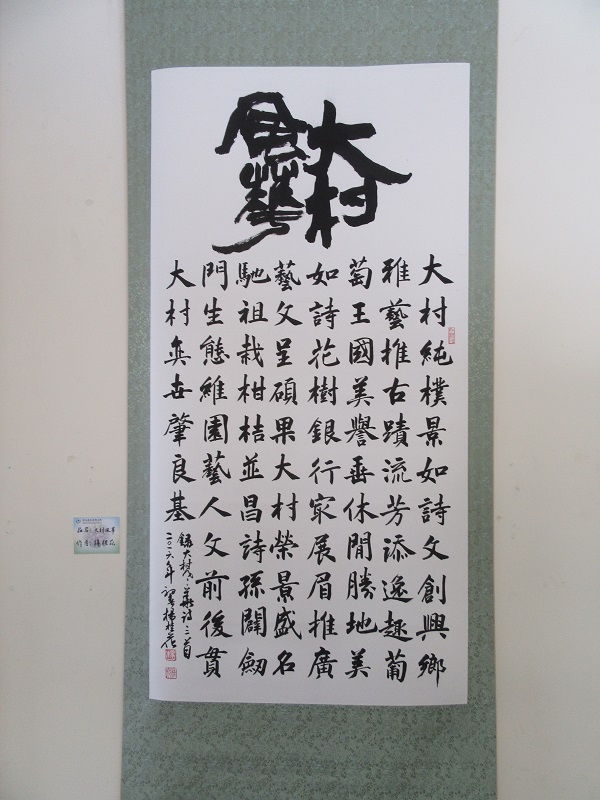 大村
風華
大村純樸景如詩文創興鄉
雅藝推古蹟流芳添逸趣葡
萄王國美譽垂休閒勝地美
如詩花樹銀行家展眉推廣
藝文呈碩果大村榮景盛名
馳祖栽柑桔並昌詩孫闢劔
門生態維園藝人文前後貫
大村奕世肇良基
錄大村風華詩三首
楊桂花
品名:大村風華
作者:楊桂花